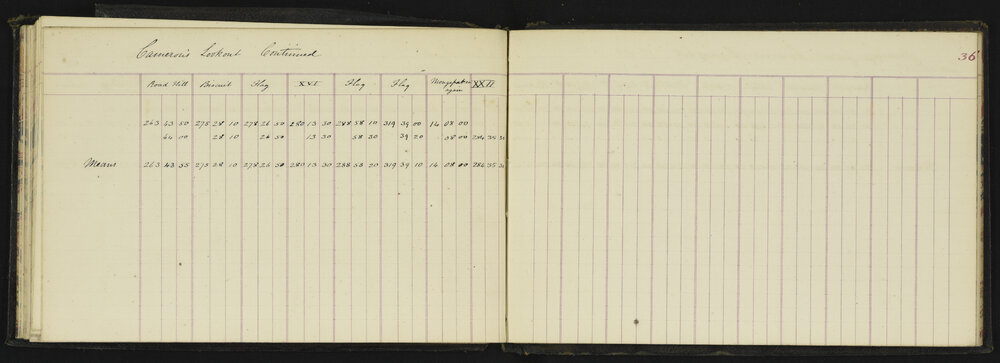 Cameron's Lookout Continued
36
Round Hill Biscuit Flag XXI Flag Flag again XXII
263 43 50 275 28 10 278 26 50 280 13 30 288 58 10 319 39 00 14 08 00
44 00 28 10 26 50 13 30 58 30 39 20 58 00 284 35
Means 263 43 55 275 28 10 278 26 50 280 13 30 288 58 20 319 39 10 14 08 00 284 35